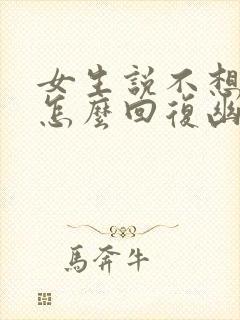 女生説不想
怎麼回復幽
馬奔牛